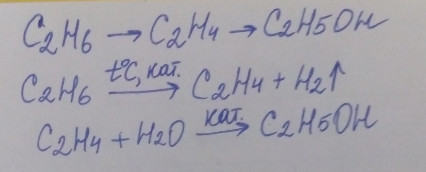 C2H6 → C2H4 → C2H5OH
C2H6 t°C, кат. → C2H4 + H2↑
C2H4 + H2O кат. → C2H5OH